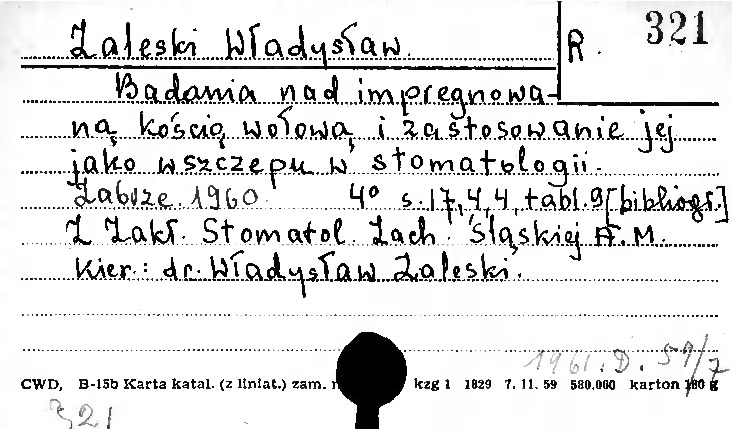 Zaleski Władysław.
R. 321
Badania nad impregnowa-
ną kością wołową i zastosowanie jej
jako wszczepu w stomatologii.
Zabrze 1960. 4° s. 17, 4, 4, tabl. 9 [bibliogr.]
Z Zakł. Stomatol. Zach. Śląskiej A.M.
Kier.: dr. Władysław Zaleski.
1961. D. 59/7
CWD, B-15b Karta katal. (z liniat.) zam. kzg 1 1829 7. 11. 59 580.000 karton 180 g
321